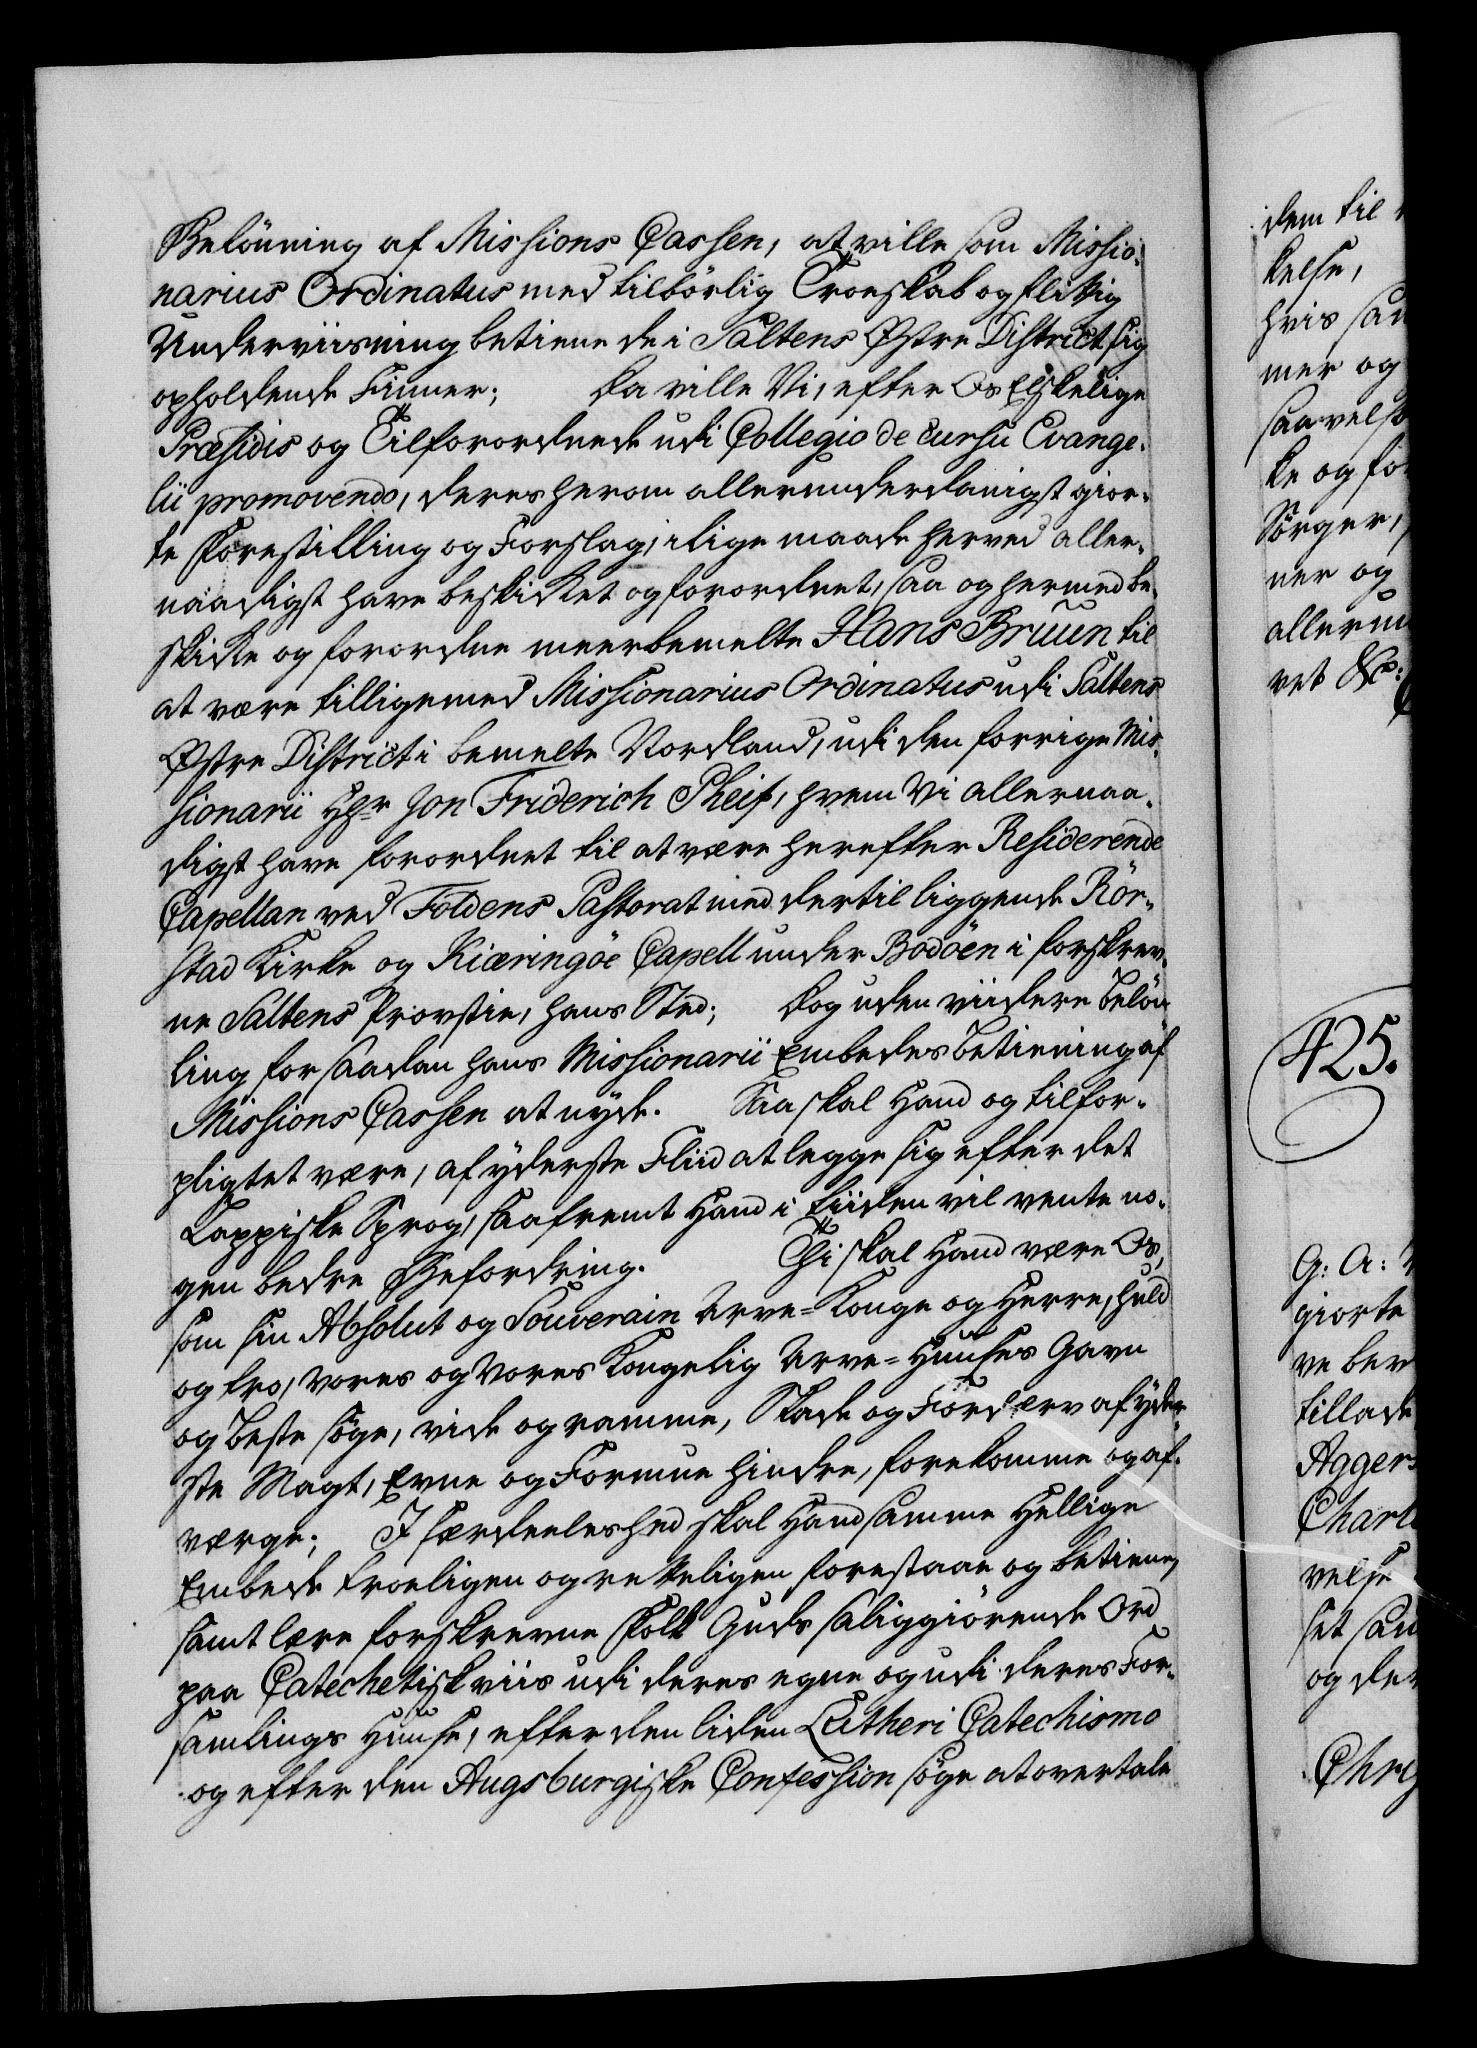 Belönning af Missions Cassen, at ville som Missio-
narius Ordinatus med tilbörlig Troeskab og flittig
Underviisning betiene de i Saltens Østre District sig
opholdende Finner; Da ville Vi, efter Os Elskelige
Præsidis og Tilforordnede udi Collegio de cursu Evange-
lii promovendo, deres herom allerunderdanigst gior-
te Forestilling og Forslag, i lige maade herved aller-
naadigst have beskikket og forordnet, saa og hermed be-
skikke og forordne meerbemelte Hans Bruun til
at være tilligemed Missionarius Ordinatus udi Saltens
Østre District i bemelte Nordland, udi den forrige Mis-
sionarii Hr Jon Friderich Pheif, hvem Vi allernaa-
digst have forordnet til at være herefter Residerende
Capellan ved Foldens Pastorat med dertil liggende Rör-
stad Kirke og Kiæringöe Capell under Bodöen i forskrev-
ne Saltens Provstie, hans Sted; Dog uden viidere belön-
ling for saadan hans Missionarii Embedes betiening af
Missions Cassen at nyde. Saa skal Hand og tilfor-
pligtet være, af yderste Fliid at legge sig efter det
Lappiske Sprog, saafremt Hand i tiiden vil vente no-
gen bedre Befordring. Thi skal Hand være Os,
som sin Absolut og Souverain Arve-Konge og Herre, huld
og tro, Vores og Vores Kongelig Arve-Huuses Gavn
og beste söge, vide og ramme, Skade og Fordærv af yder-
ste Magt, Evne og Formue hindre, forekomme og af-
værge; I særdeeleshed skal Hand samme Hellige
Embede troeligen og retteligen forestaae og betiene,
samt lære forskrevne Folk Guds saliggiörende Ord
paa Catechetisk viis udi deres egne og udi deres For-
samlings Huuse, efter den liden Lutheri Catechismo
og efter den Augsburgiske Confession söge at overtale
dem til
kelse,
hvis
mer og
saavel
ke og
Sörger,
ner og
allerun
vet &c:
425.
G: A:
giorte
ve ber
tillade
Agger
Charl
velse
set
og der
Chri